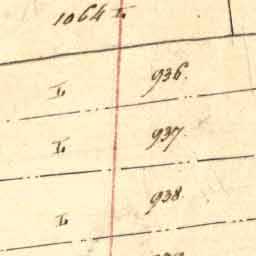 1064 L
L 936.
L 937
L 938